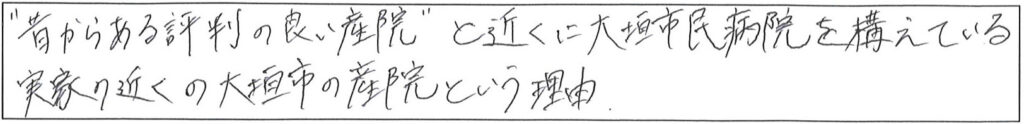 "昔からある評判の良い産院"と近くに大垣市民病院を構えている
実家の近くの大垣市の産院という理由.